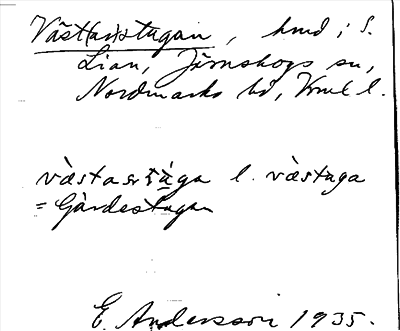 Väst(ar)stugan, hmd i S.
Lian, Järnskogs sn,
Nordmarks hd, Vrml l.
västa l. västuga
= Gärdestugan
E. Andersson 1935.